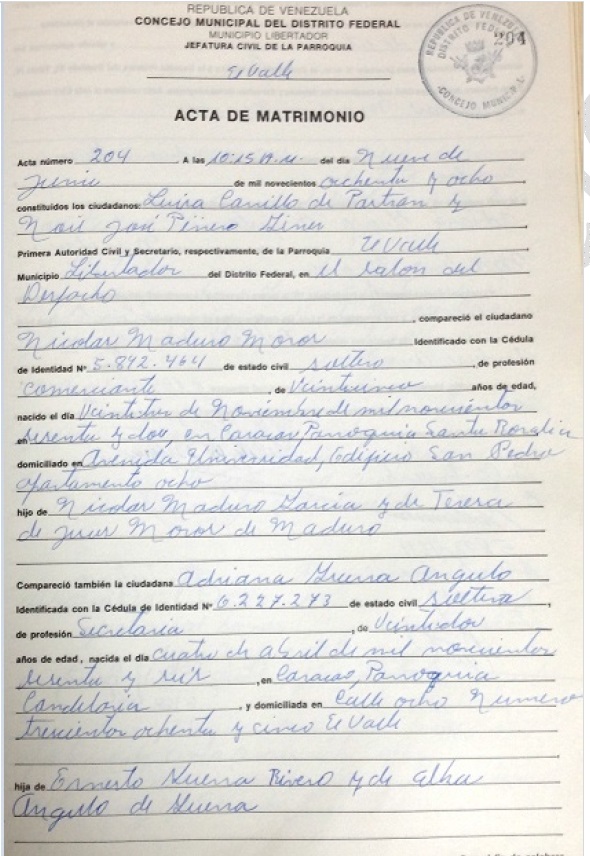 REPUBLICA DE VENEZUELA
CONCEJO MUNICIPAL DEL DISTRITO FEDERAL
MUNICIPIO LIBERTADOR
JEFATURA CIVIL DE LA PARROQUIA
El Valle
REPUBLICA DE VENEZUELA
DISTRITO FEDERAL
CONCEJO MUNICIPAL
204
ACTA DE MATRIMONIO
Acta número 204 A las 10:15 A.M. del día Nueve de
Junio de mil novecientos ochenta y ocho
constituidos los ciudadanos: Luisa Carrillo de y
José Piñero Giner
Primera Autoridad Civil y Secretario, respectivamente, de la Parroquia El Valle
Municipio Libertador del Distrito Federal, en el salon del
Despacho
, compareció el ciudadano
Nicolas Maduro Moros Identificado con la Cédula
de Identidad Nº 5.892.464 de estado civil soltero, de profesión
comerciante, de Veinticinco años de edad,
nacido el día Veintitres de Noviembre de mil novecientos
en sesenta y dos, en Caracas, Parroquia Santa Rosalia
domiciliado en Avenida Universidad, Edificio San Pedro
apartamento ocho
hijo de Nicolas Maduro Garcia y de Teresa
de Jesus Moros de Maduro
Compareció también la ciudadana Adriana Guerra Angulo
Identificada con la Cédula de Identidad Nº 6.227.273 de estado civil soltera,
de profesión Secretaria, de Veintidos
años de edad, nacida el día cuatro de abril de mil novecientos
sesenta y seis, en Caracas, Parroquia
Candelaria, y domiciliada en Calle ocho Numero
trescientos ochenta y cinco El Valle
hija de Ernesto Guerra Rivero y de Alba
Angulo de Guerra